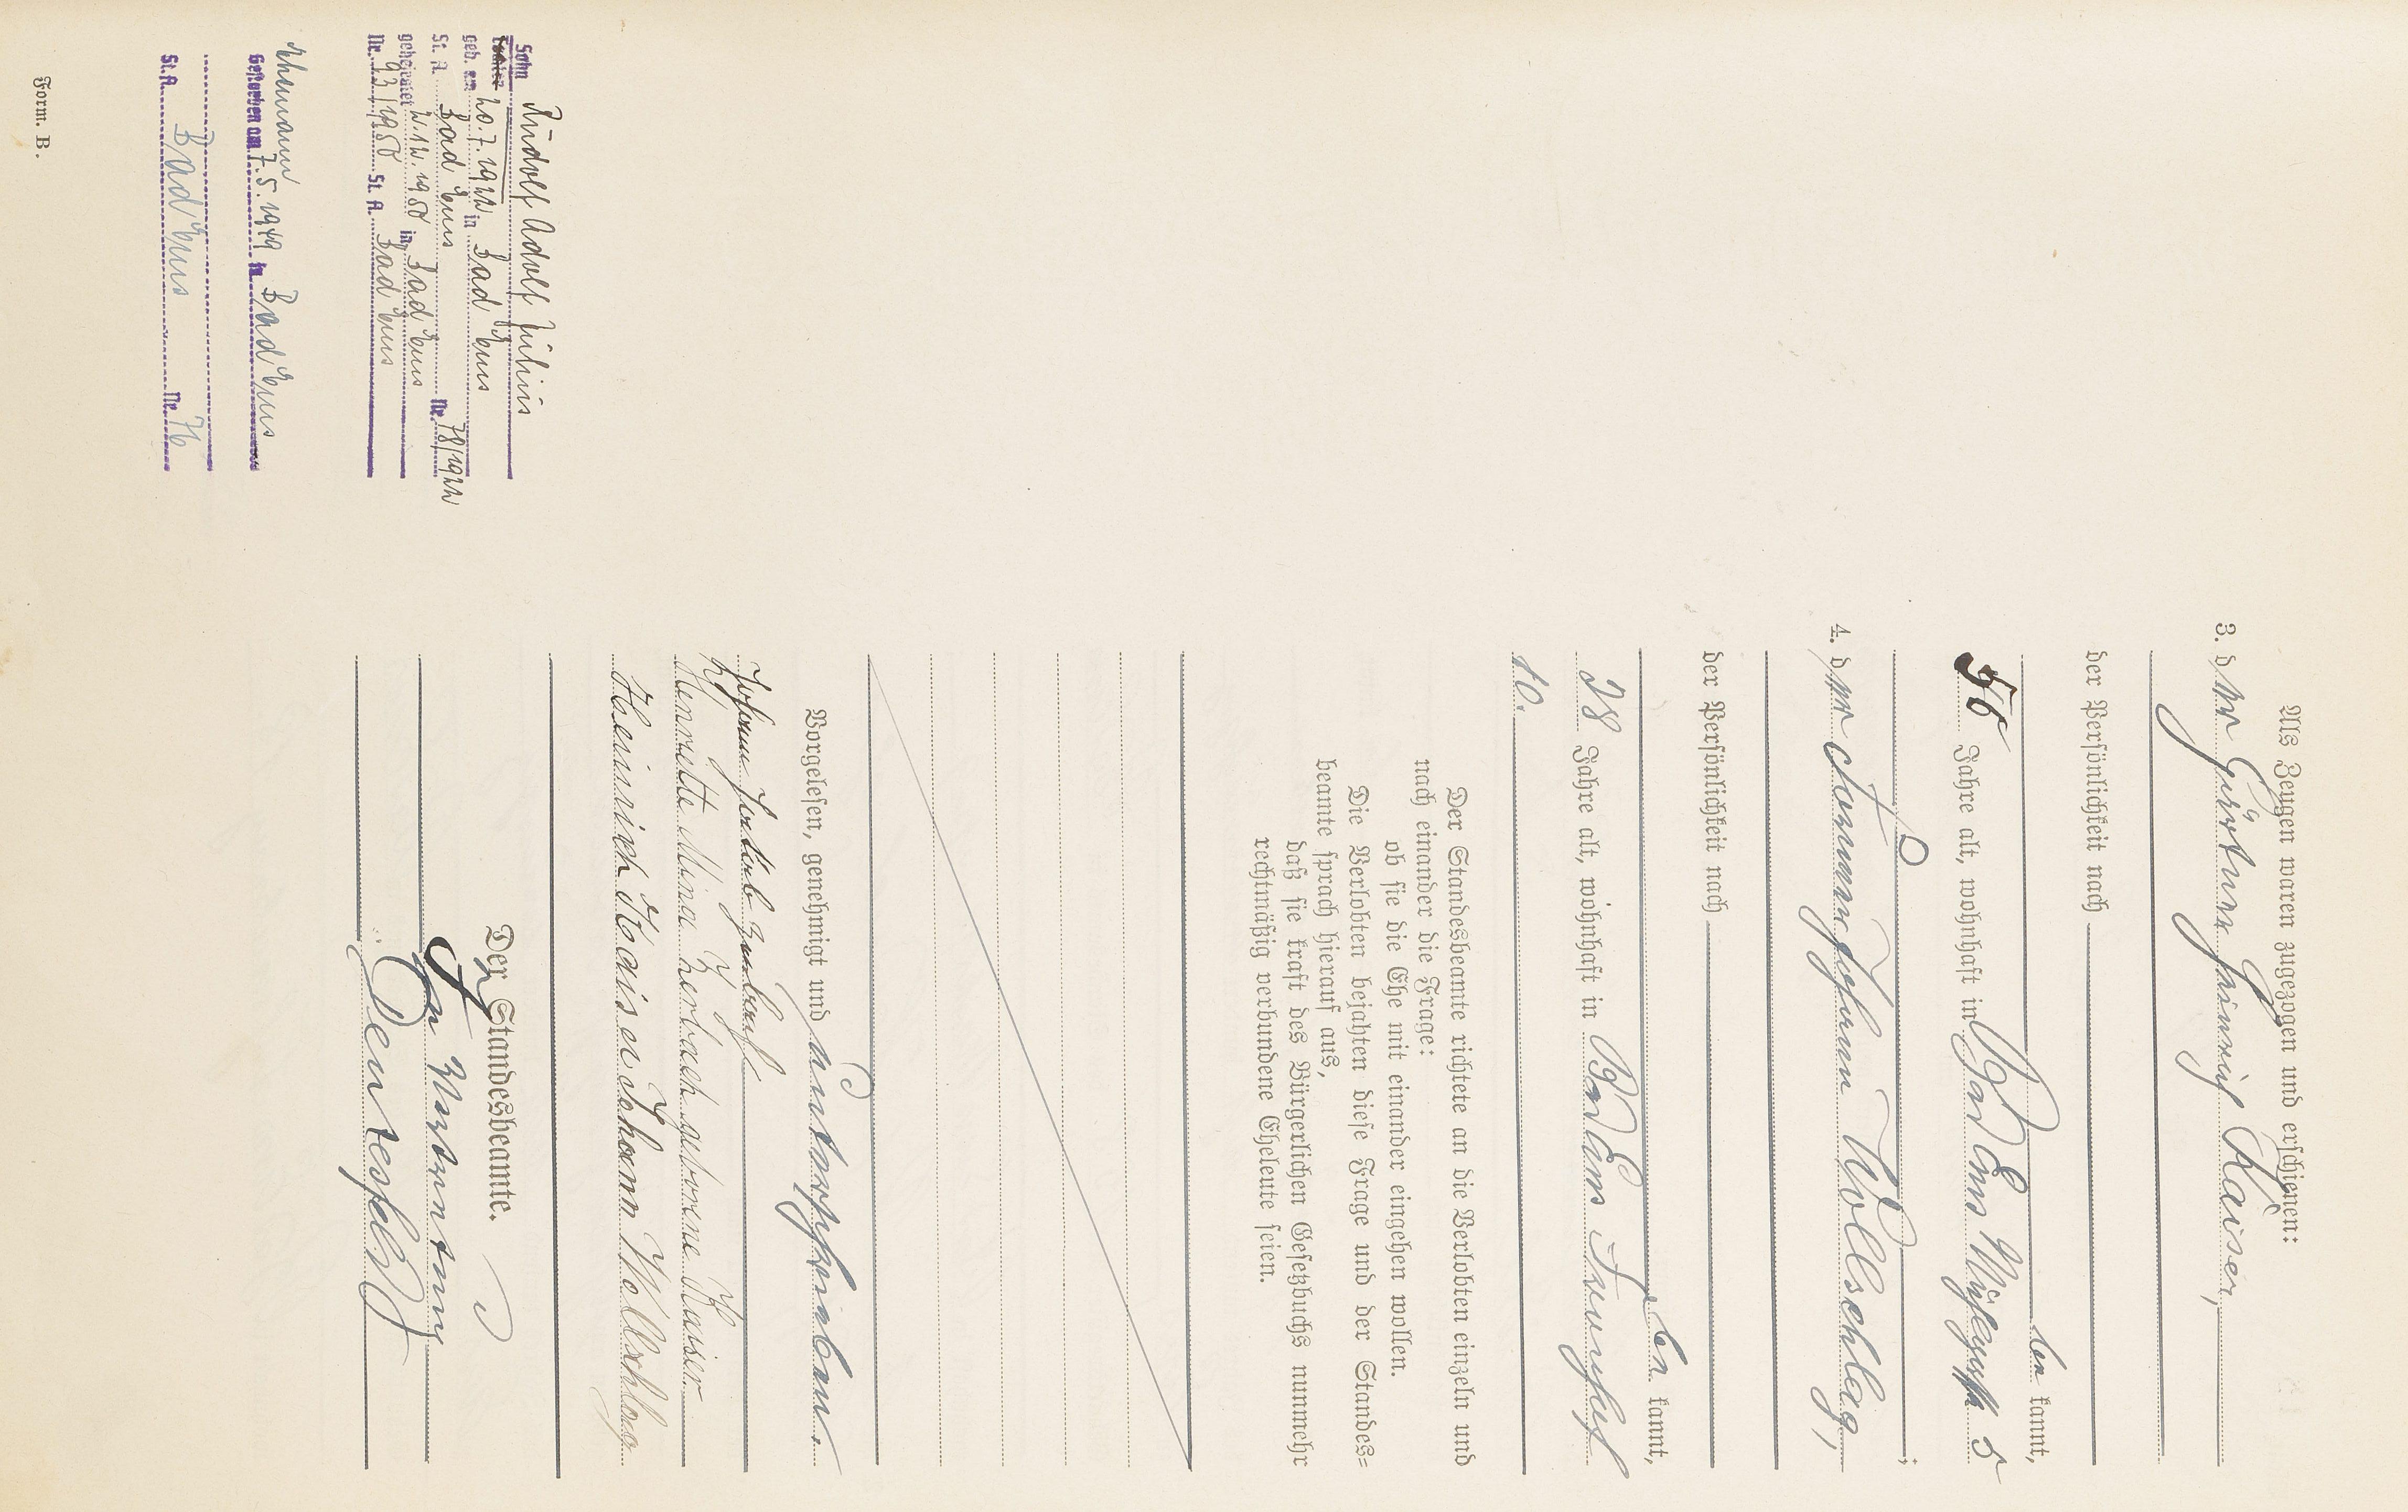 Als Zeugen waren zugezogen und erschienen:
3. der Gärtner Heinrich Kaiser,
der Persönlichkeit nach
be kannt,
56 Jahre alt, wohnhaft in Bad Ems 5
4. der Johann Wollschlag,
;
der Persönlichkeit nach
be kannt,
28 Jahre alt, wohnhaft in Bad Ems
10.
Der Standesbeamte richtete an die Verlobten einzeln und
nach einander die Frage:
ob sie die Ehe mit einander eingehen wollen.
Die Verlobten bejahten diese Frage und der Standes=
beamte sprach hierauf aus,
daß sie kraft des Bürgerlichen Gesetzbuchs nunmehr
rechtmäßig verbundene Eheleute seien.
Vorgelesen, genehmigt und unterschrieben.
Johann Jakob
Henriette Mina geborene Kaiser
Heinrich Kaiser Johann Wollschlag
Der Standesbeamte.
In Vertretung
Sohn Rudolf Adolf Julius
Tochter
geb. am 20.7.1922 in Bad Ems
St. A. Bad Ems Nr. 78/1922
geheiratet 2.12.1950 in Bad Ems
Nr. 93/1950 St. A. Bad Ems
Ehemann
Gestorben am 7.5.1949 in Bad Ems
St.A. Bad Ems Nr. 76
Form. B.